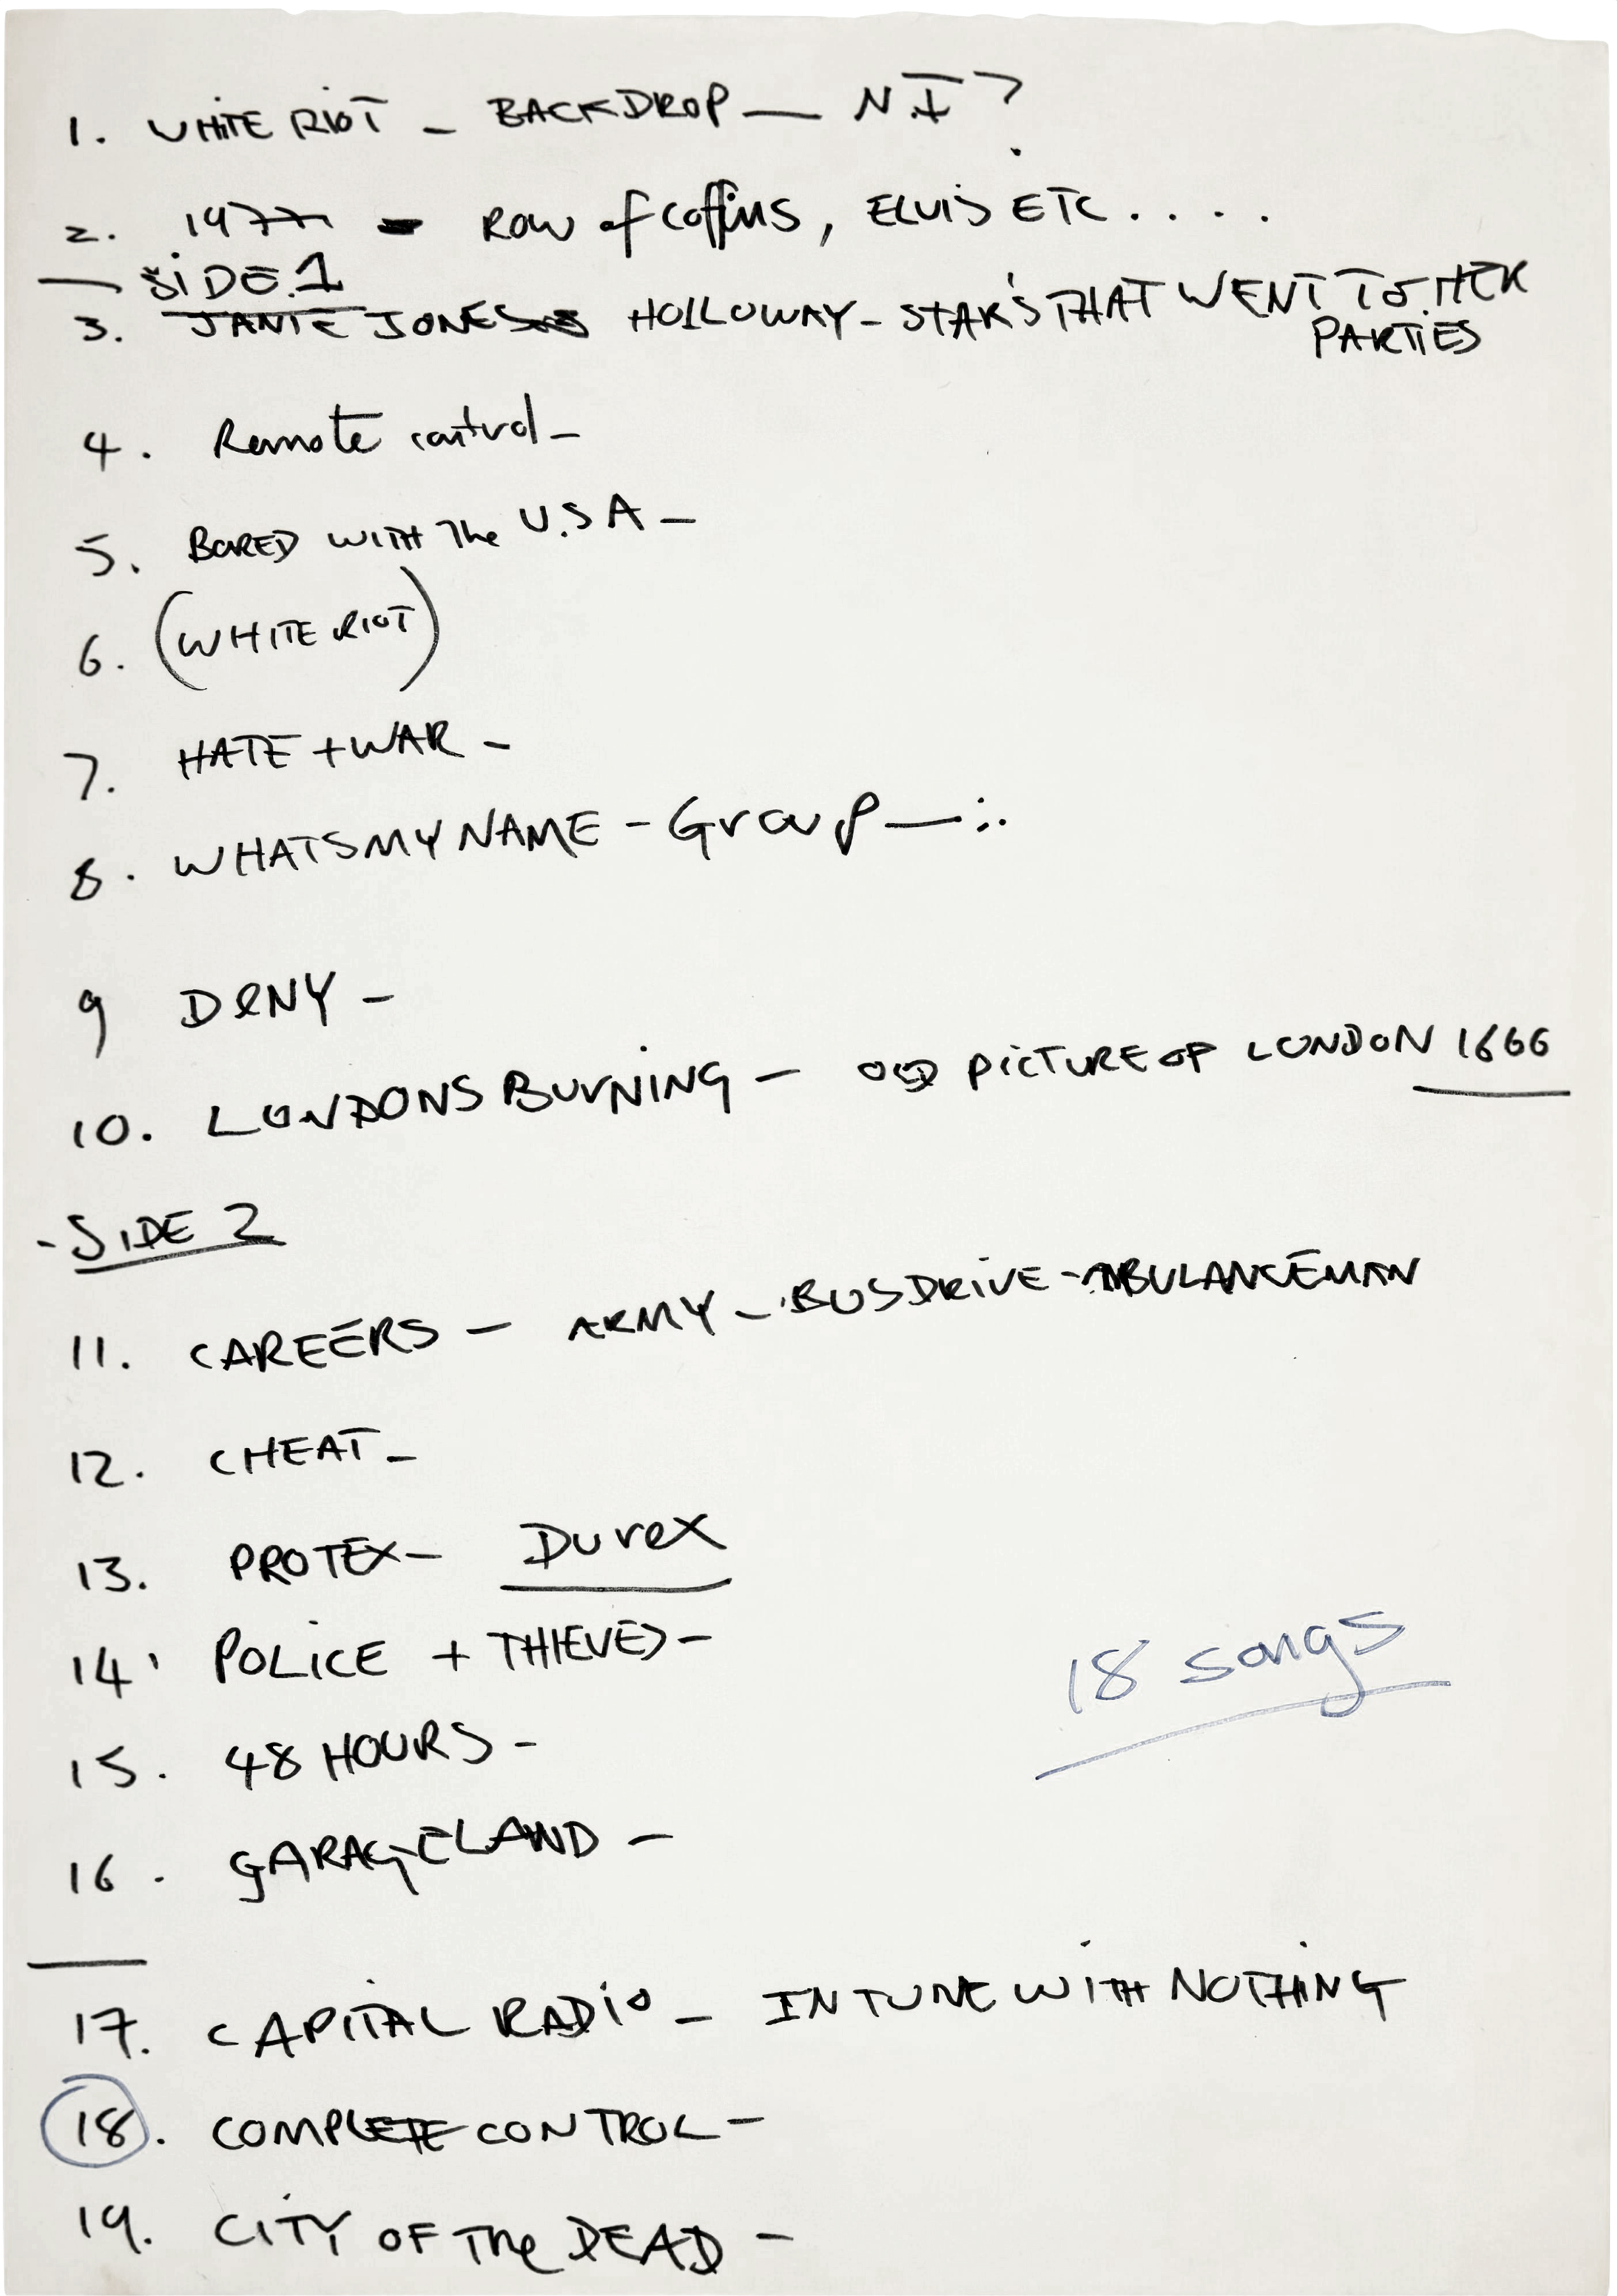 1. WHITE RIOT - BACKDROP — N.I?
2. 1977 - ROW of coffins, ELVIS ETC . . . .
— SIDE.1
3. JANIE JONES HOLLOWAY - STARS THAT WENT TO HER
PARTIES
4. Remote control -
5. BORED WITH The U.S.A -
6. (WHITE RIOT)
7. HATE + WAR -
8. WHATS MY NAME - Group — :.
9 DENY -
10. LONDONS BURNING - OLD PICTURE OF LONDON 1666
- SIDE 2
11. CAREERS - ARMY - BUS DRIVE - AMBULANCEMAN
12. CHEAT -
13. PROTEX - Durex
14. POLICE + THIEVES -
18 songs
15. 48 HOURS -
16. GARAGELAND -
17. CAPITAL RADIO - IN TUNE WITH NOTHING
18. COMPLETE CONTROL -
19. CITY OF The DEAD -